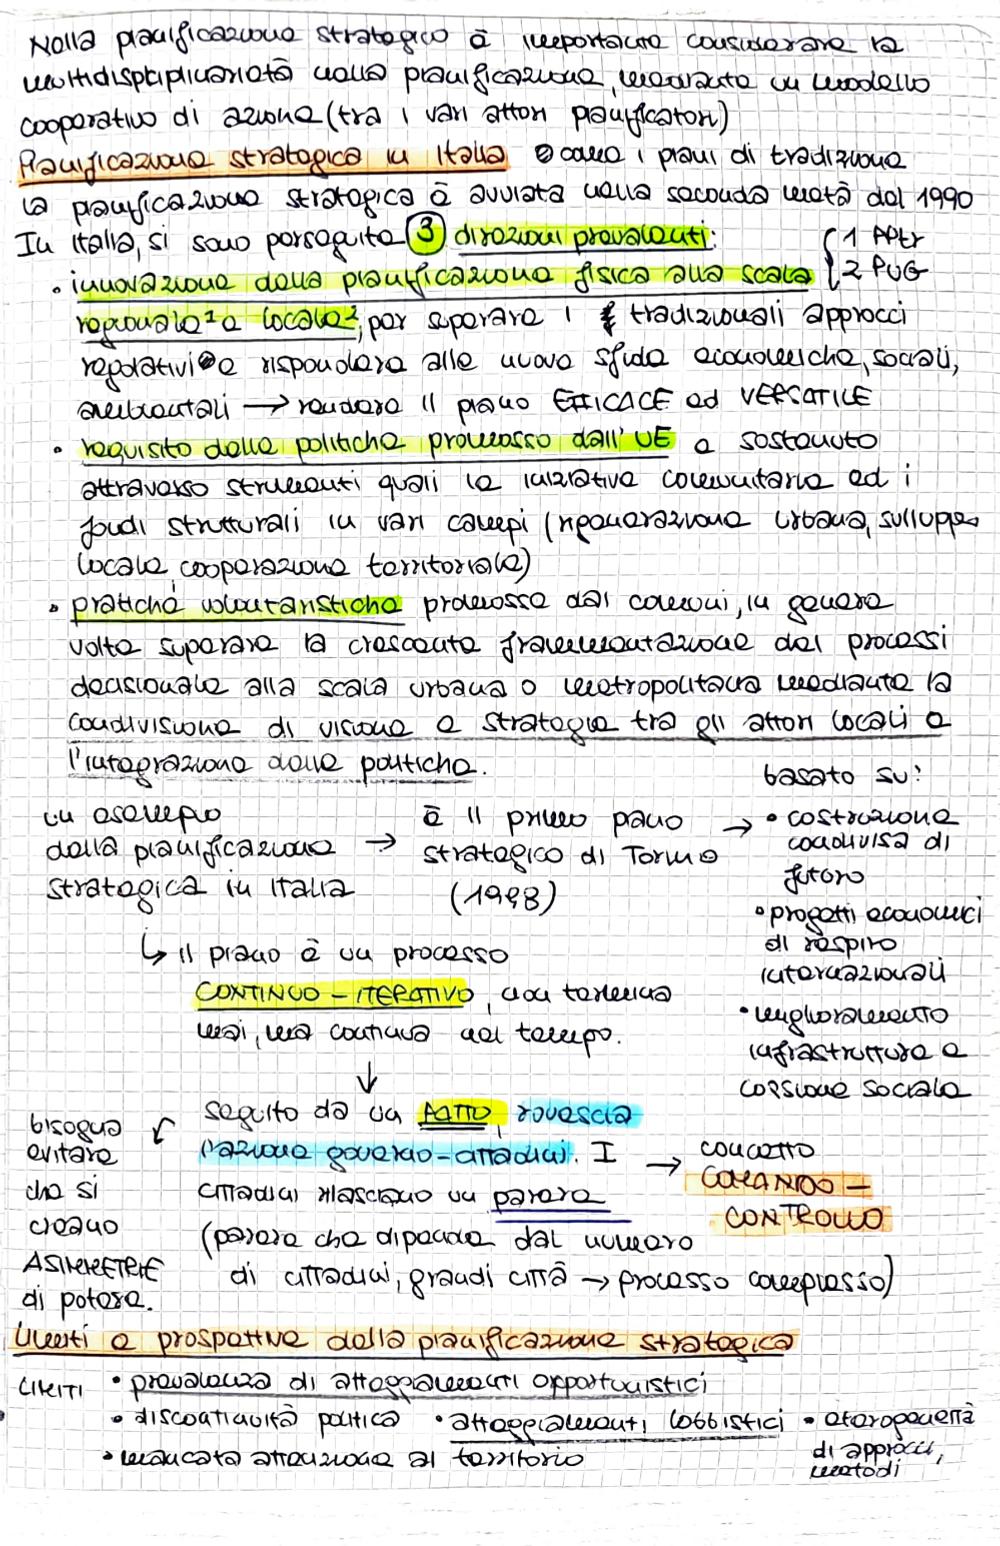 Nella pianificazione strategica è importante considerare la
multidisciplinarietà nella pianificazione, mediante un modello
cooperativo di azione (tra i vari attori pianificatori)
Pianificazione strategica in Italia come i piani di tradizione
la pianificazione strategica è avviata nella seconda metà del 1990
In Italia, si sono perseguite 3 direzioni prevalenti:
{ 1 PPtr
2 PUG
• innovazione della pianificazione fisica alla scala
regionale¹ e locale², per superare i tradizionali approcci
regolativi e rispondere alle nuove sfide economiche, sociali,
ambientali → rendere il piano EFFICACE ed VERSATILE
• requisito delle politiche promosso dall'UE e sostenuto
attraverso strumenti quali le iniziative comunitarie ed i
fondi strutturali in vari campi (rigenerazione urbana, sviluppo
locale, cooperazione territoriale)
• pratiche volontaristiche promosse dai comuni, in genere
volte superare la crescente frammentazione dei processi
decisionale alla scala urbana o metropolitana mediante la
condivisione di visione e strategie tra gli attori locali e
l'integrazione delle politiche.
un esempio
della pianificazione →
strategica in Italia
è il primo piano →
strategico di Torino
(1998)
basato su:
• costruzione
condivisa di
futuro
• progetti economici
di respiro
internazionali
• miglioramento
infrastrutture e
coesione sociale
↳ il piano è un processo
CONTINUO - ITERATIVO, non termina
mai, ma continua nel tempo.
↓
seguito da un PATTO, rovescia
l'azione governo-cittadini. I
cittadini rilasciano un parere
(parere che dipende dal numero
di cittadini, grandi città → processo complesso)
→ concetto
COMANDO -
CONTROLLO
bisogna
evitare
che si
creano
ASIMMETRIE
di potere.
Limiti e prospettive della pianificazione strategica
LIMITI • prevalenza di atteggiamenti opportunistici
• discontinuità politica • atteggiamenti lobbistici • eterogeneità
di approcci,
metodi
• mancata attenzione al territorio